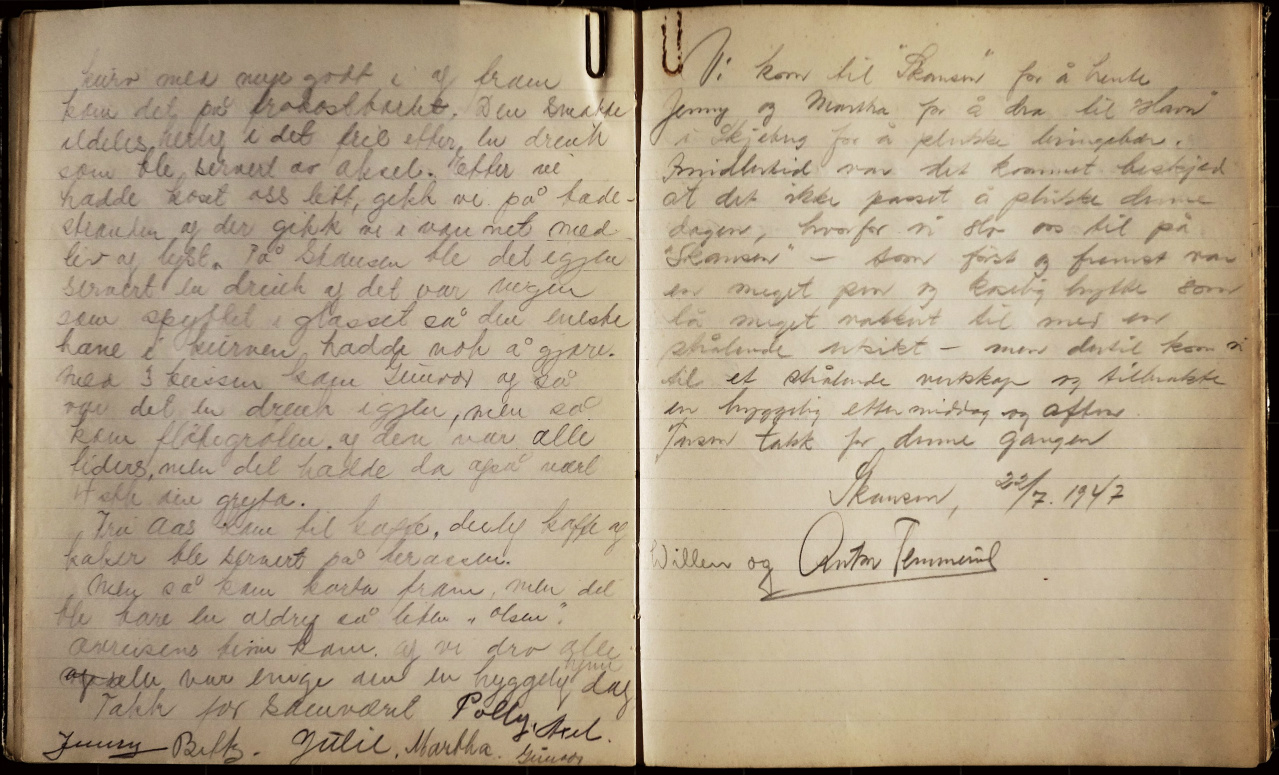 kurv med mye godt i og fram
kom det på frokostbordet. Den smakte
aldeles herlig i det fri efter en drink
som ble servert av Aksel. Efter vi
hadde kost oss litt, gikk vi på bade-
stranden og der gikk vi i vannet med
liv og lyst. På Skansen ble det igjen
servert en drink og det var ingen
som spyttet i glasset så den eneste
hane i kurven hadde nok å gjøre.
med 3 bussen kom Gunvor og så
var det en drink igjen, men så
kom fløtegrøten. og den var alle
tiders, men det hadde da også vært
4 stk om gryta.
Fru Aas kom til kaffe, deilig kaffe og
kaker ble servert på terassen.
Men så kom korta fram, men det
ble bare en aldri så liten "Olsen".
avreisens time kom. og vi dro alle
hjem
var enige om en hyggelig dag
Takk for samværet Polly, Aksel.
Jenny Betty. Julie. Martha. Gunvor
Vi kom til "Skansen" for å hente
Jenny og Martha for å dra til "Havn"
i Skjeberg for å plukke bringebær.
Imidlertid var det kommet beskjed
at det ikke passet å plukke denne
dagen, hvorfor vi slo oss til på
"Skansen" – som først og fremst var
en meget pen og koselig hytte som
lå meget vakkert til med en
strålende utsikt – men dertil kom vi
til et strålende vertskap og tilbrakte
en hyggelig ettermiddag og aften.
Tusen takk for denne gangen
Skansen, 22/7. 1947
Willen og Anton